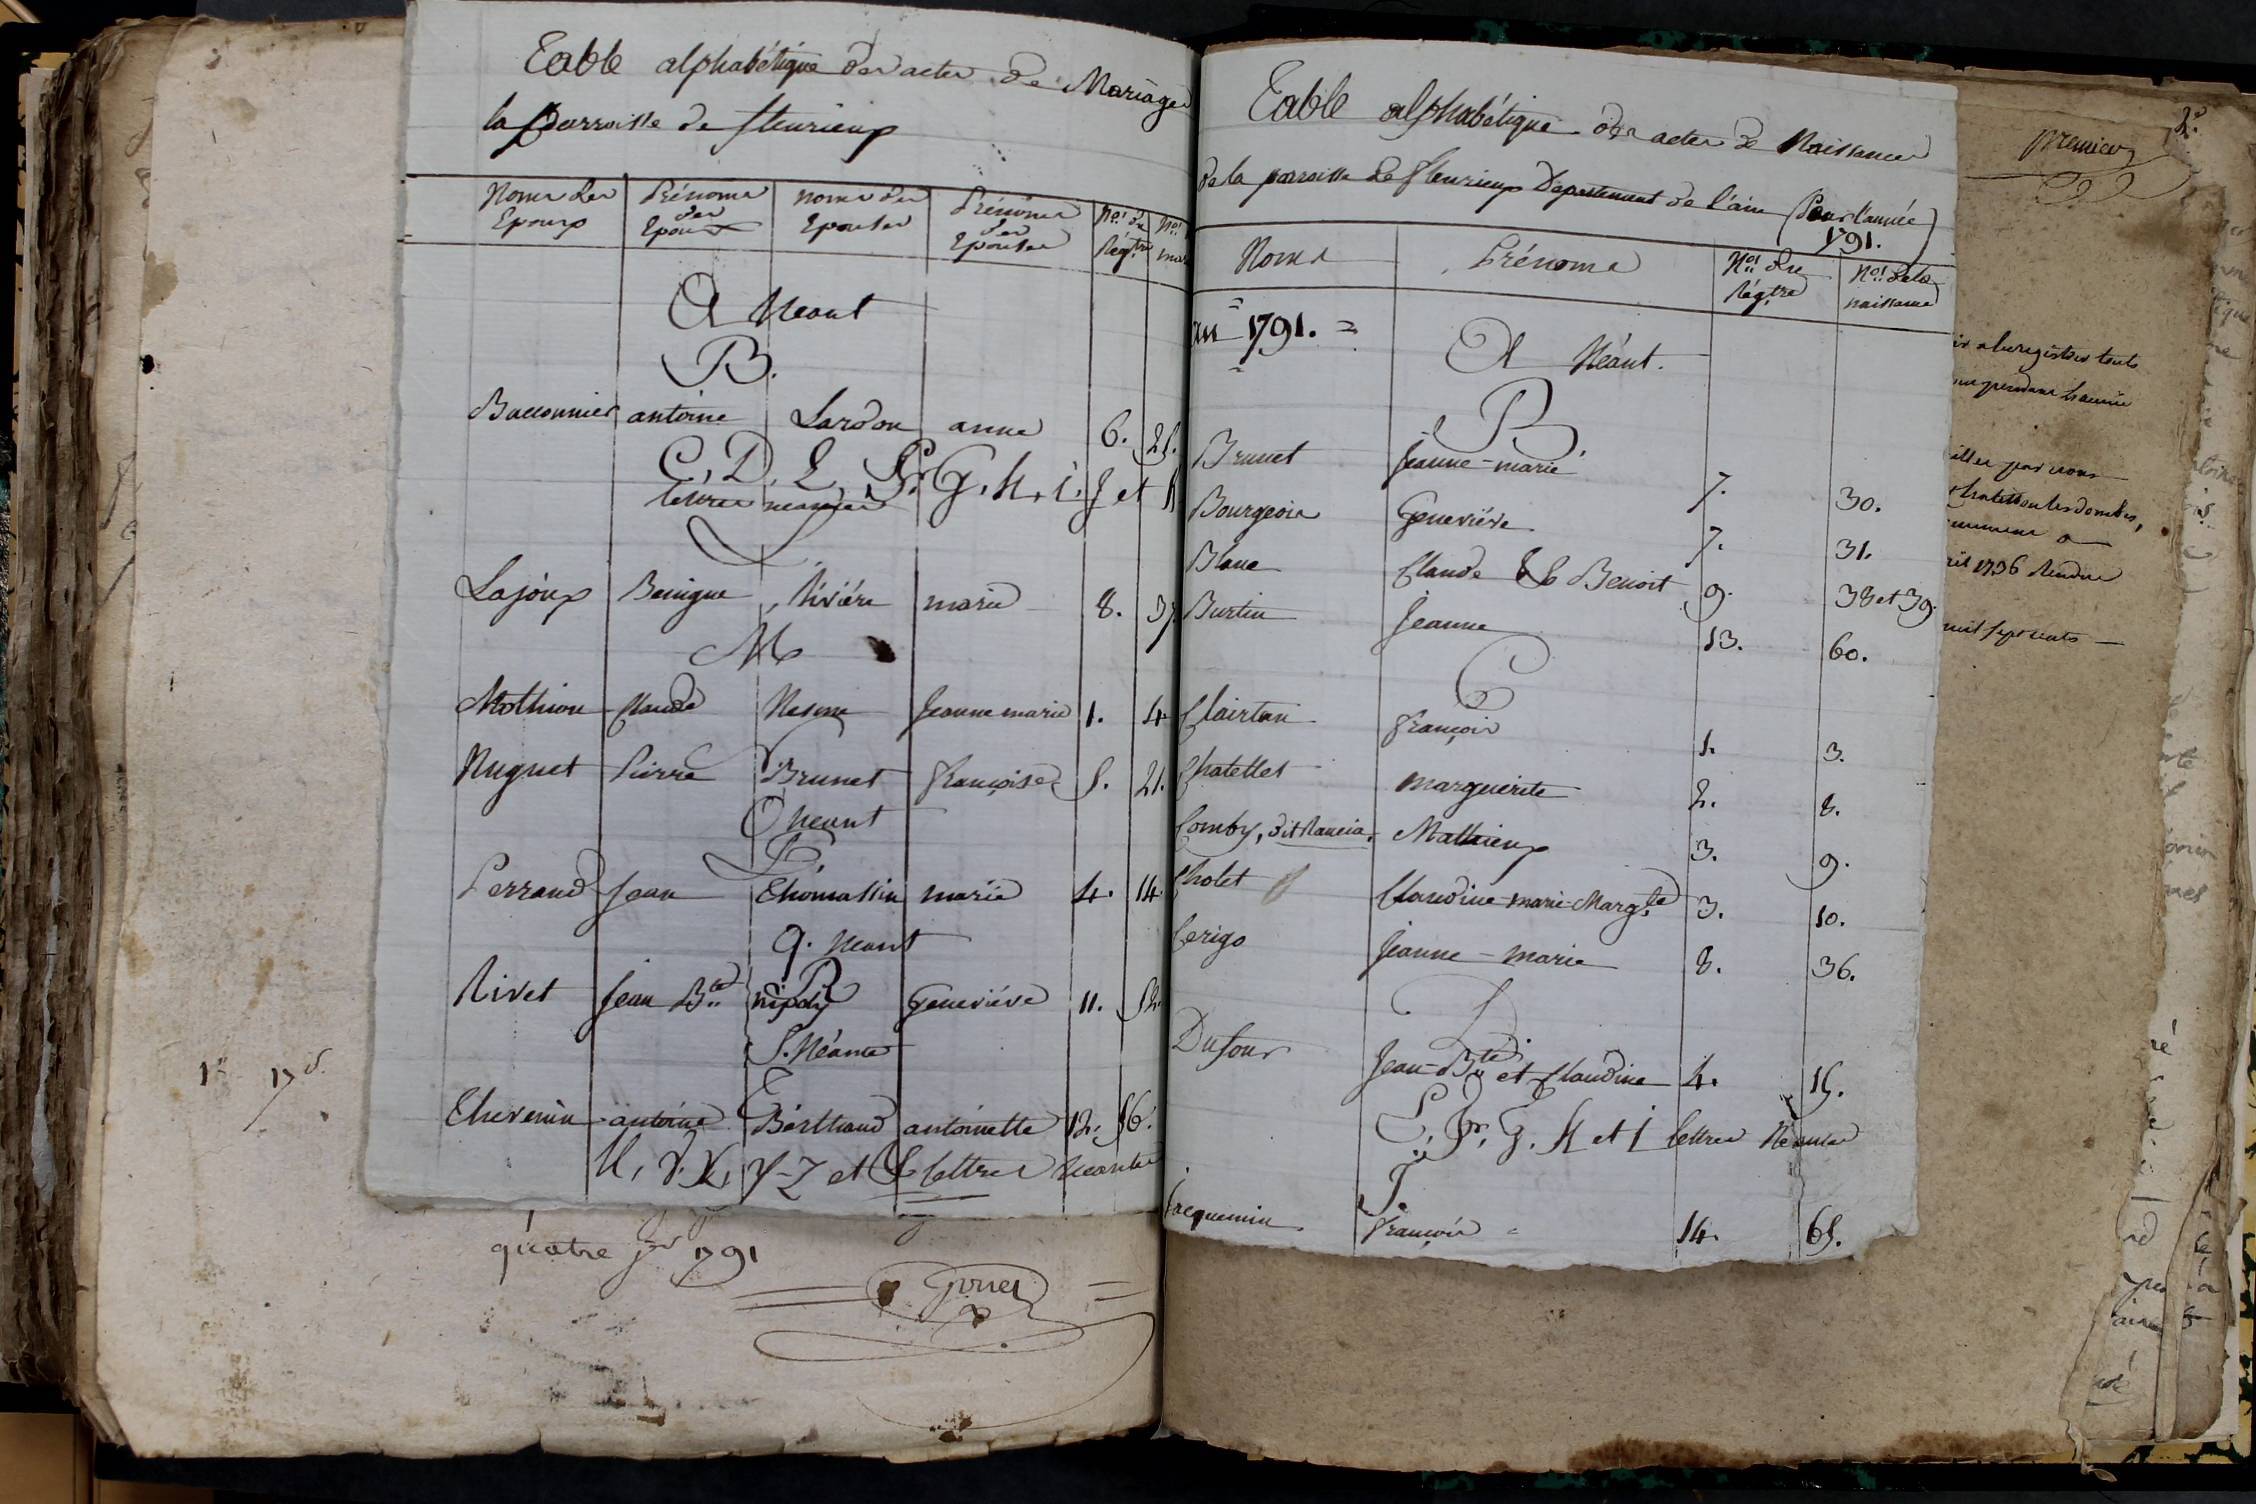 Table alphabétique des actes de Mariages
la parroisse de fleurieux
Noms des Epoux Prénoms des Epoux noms des Epouses Prénoms des Epouses Nos. du Régtre Nos.
A Néant
B.
Bacconnier antoine Lardon anne 6. 25.
C, D, E, F. G. h, i, J et
lettres neantes
Lajoux Benigne Rivière marie 8. 37.
M
Mathion Claude Nesme Jeanne marie 1. 4
N
Nuguet Pierre Brunet françoise 5. 21.
O neant
P.
Perraud Jean Thomassin marie 4. 14
q. neant
R
Rivet Jean Bte Geneviéve 11. 52.
S. Néant
T
Thevenin antoine Berthaud antoinette 12. 56.
U, V. X, Y-Z et & lettres neantes
quatre jer 1791
Table alphabétique des actes de Naissances
de la parroisse de fleurieux Département de l'ain (Pour l'année
1791.)
Noms Prénoms Nos. du Régtre Nos. de la naissance
an 1791. =
A Néant.
B
Brunet Jeanne-marie 7. 30.
Bourgeois Geneviéve 7. 31.
Blanc Claude & Benoit 9. 38 et 39.
Burtin Jeanne 13. 60.
C
françois 1. 3.
Chatellet marguerite 2. 8.
Comby, dit Mathieux 3. 9.
Cholet Claudine-marie-Margte 3. 10.
Cerigo Jeanne-marie 8. 36.
D.
Dufour Jean-Bte et Claudine 4. 15.
E, F, G, H et I lettres Néantes
J.
Jacquemin françois = 14. 65.
premier
1736
sept cents